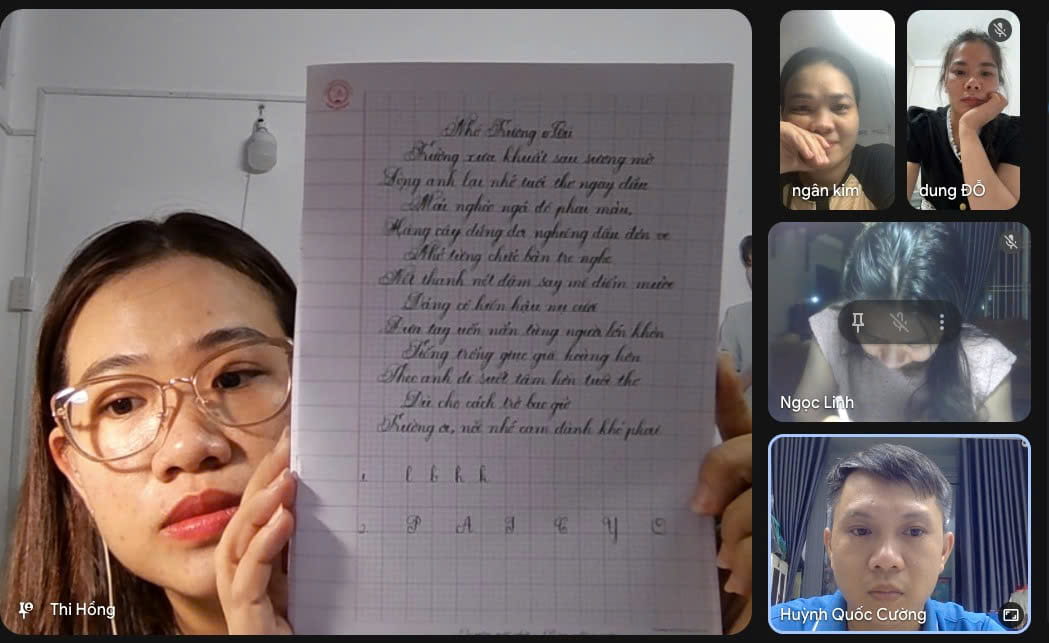 Nhớ Trường Xưa
Trường xưa khuất sau sương mờ
Động anh lại nhớ tuổi thơ ngày đầu
Mái nghiêng ngả đỏ phai màu,
Hàng cây đứng đợi nghiêng đầu đón ve
Nhớ từng chiếc bàn tre nghe
Nét thanh nét đậm say mê điểm mười
Dáng cô hiền hậu nụ cười
Đưa tay uốn nắn từng người lớn khôn
Tiếng trống giục giã hoàng hôn
Theo anh đi suốt tâm hồn tuổi thơ
Dù cho cách trở bao giờ
Trường ơi, nỗi nhớ cam dành khó phai
1. l b h k
2. P A I C Y O
Thi Hồng
ngân kim
dung ĐỖ
Ngọc Linh
Huỳnh Quốc Cường